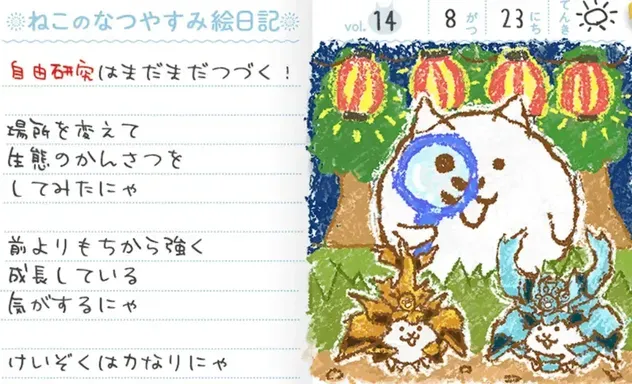 ねこのなつやすみ絵日記
vol. 14 8 がつ 23 にち てんき
自由研究はまだまだつづく！
場所を変えて
生態のかんさつを
してみたにゃ
前よりもちから強く
成長している
気がするにゃ
けいぞくはかなりにゃ